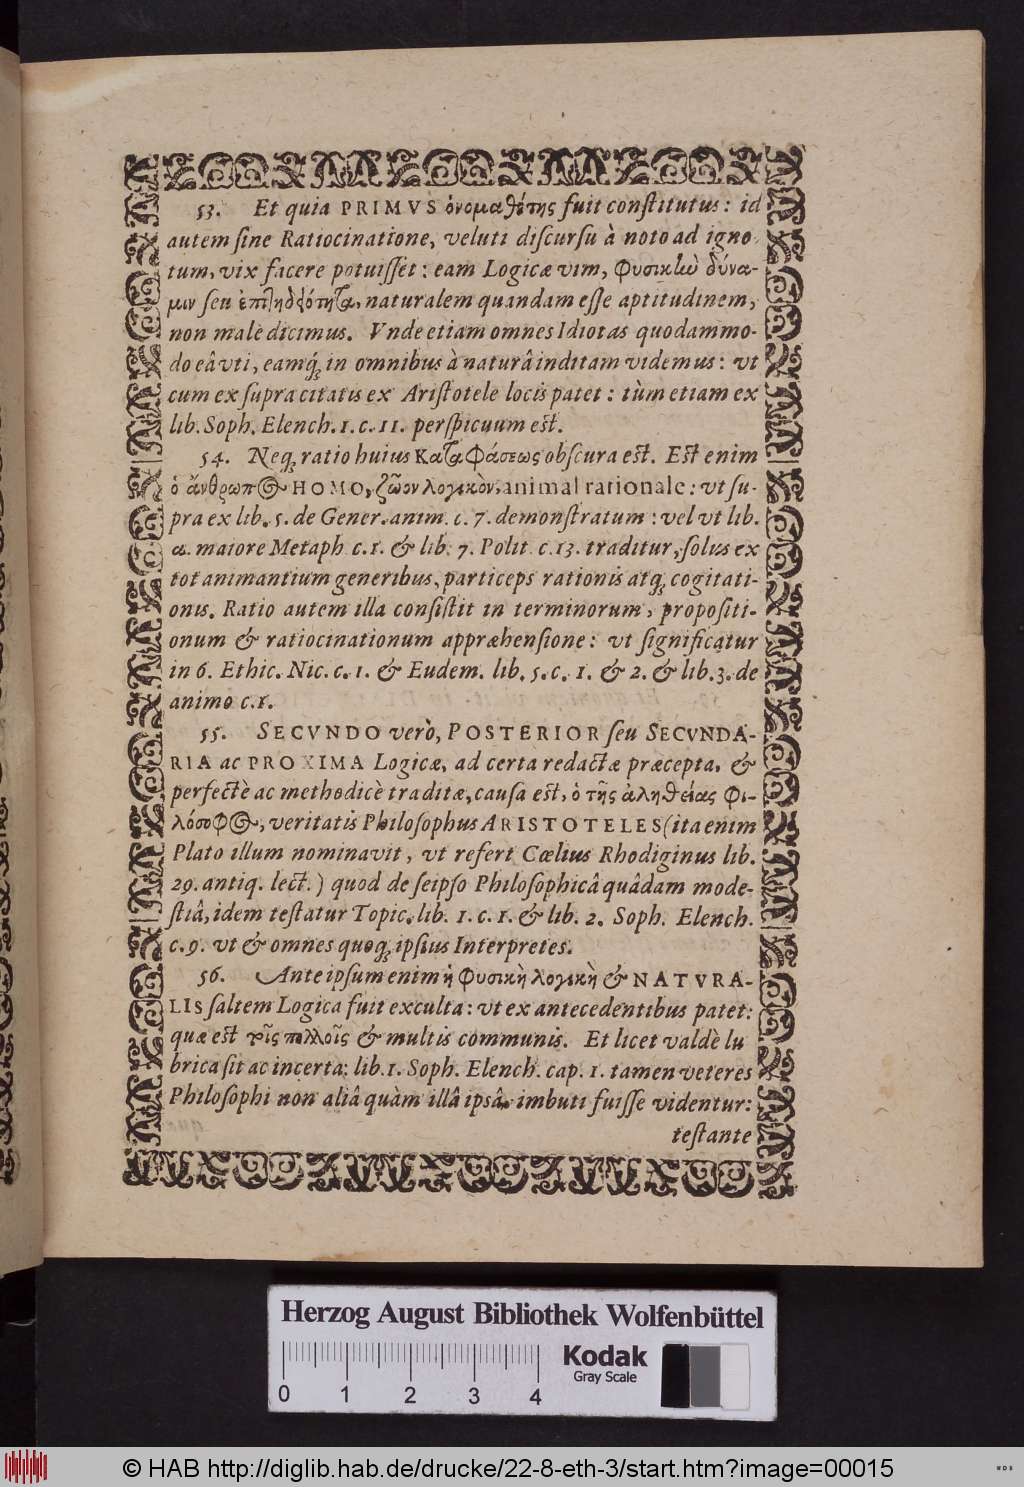 53. Et quia PRIMVS ὀνομαθέτης fuit constitutus: id
autem sine Ratiocinatione, veluti discursu à noto ad igno
tum, vix facere potuisset: eam Logicæ vim, φυσικὴν δύνα-
μιν seu ἐπιτηδειότητα, naturalem quandam esse aptitudinem,
non malè dicimus. Vnde etiam omnes Idiotas quodammo-
do eâ vti, eamq́; in omnibus à naturâ inditam videmus: vt
cum ex supra citatis ex Aristotele locis patet: tùm etiam ex
lib. Soph. Elench. 1. c. 11. perspicuum est.
54. Neq; ratio huius καταφάσεως obscura est. Est enim
ὁ ἄνθρωπος HOMO, ζῶον λογικὸν, animal rationale: vt su-
pra ex lib. 5. de Gener. anim. c. 7. demonstratum: vel vt lib.
α. maiore Metaph. c. 1. & lib. 7. Polit. c. 13. traditur, solus ex
tot animantium generibus, particeps rationis atq; cogitati-
onis. Ratio autem illa consistit in terminorum, propositi-
onum & ratiocinationum appræhensione: vt significatur
in 6. Ethic. Nic. c. 1. & Eudem. lib. 5. c. 1. & 2. & lib. 3. de
animo c. 1.
55. SECVNDO verò, POSTERIOR seu SECVNDA-
RIA ac PROXIMA Logicæ, ad certa redactæ præcepta, &
perfectè ac methodicè traditæ, causa est, ὁ τῆς ἀληθείας φι-
λόσοφος, veritatis Philosophus ARISTOTELES (ita enim
Plato illum nominavit, vt refert Cœlius Rhodiginus lib.
29. antiq. lect.) quod de seipso Philosophicâ quâdam mode-
stiâ, idem testatur Topic. lib. 1. c. 1. & lib. 2. Soph. Elench.
c. 9. vt & omnes quoq; ipsius Interpretes.
56. Ante ipsum enim ἡ φυσικὴ λογικὴ & NATVRA-
LIS saltem Logica fuit exculta: vt ex antecedentibus patet:
quæ est τοῖς πολλοῖς & multis communis. Et licet valdè lu
brica sit ac incerta: lib. 1. Soph. Elench. cap. 1. tamen veteres
Philosophi non aliâ quàm illâ ipsâ imbuti fuisse videntur:
testante
Herzog August Bibliothek Wolfenbüttel
0 1 2 3 4
Kodak
Gray Scale
© HAB http://diglib.hab.de/drucke/22-8-eth-3/start.htm?image=00015